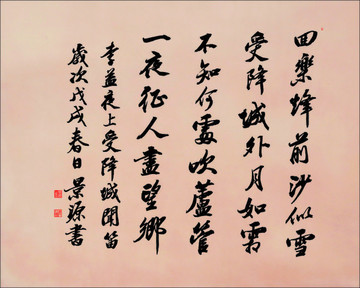 回樂烽前沙似雪
受降城外月如霜
不知何處吹蘆管
一夜征人盡望鄉
李益夜上受降城聞笛
歲次戊戌春日景源書